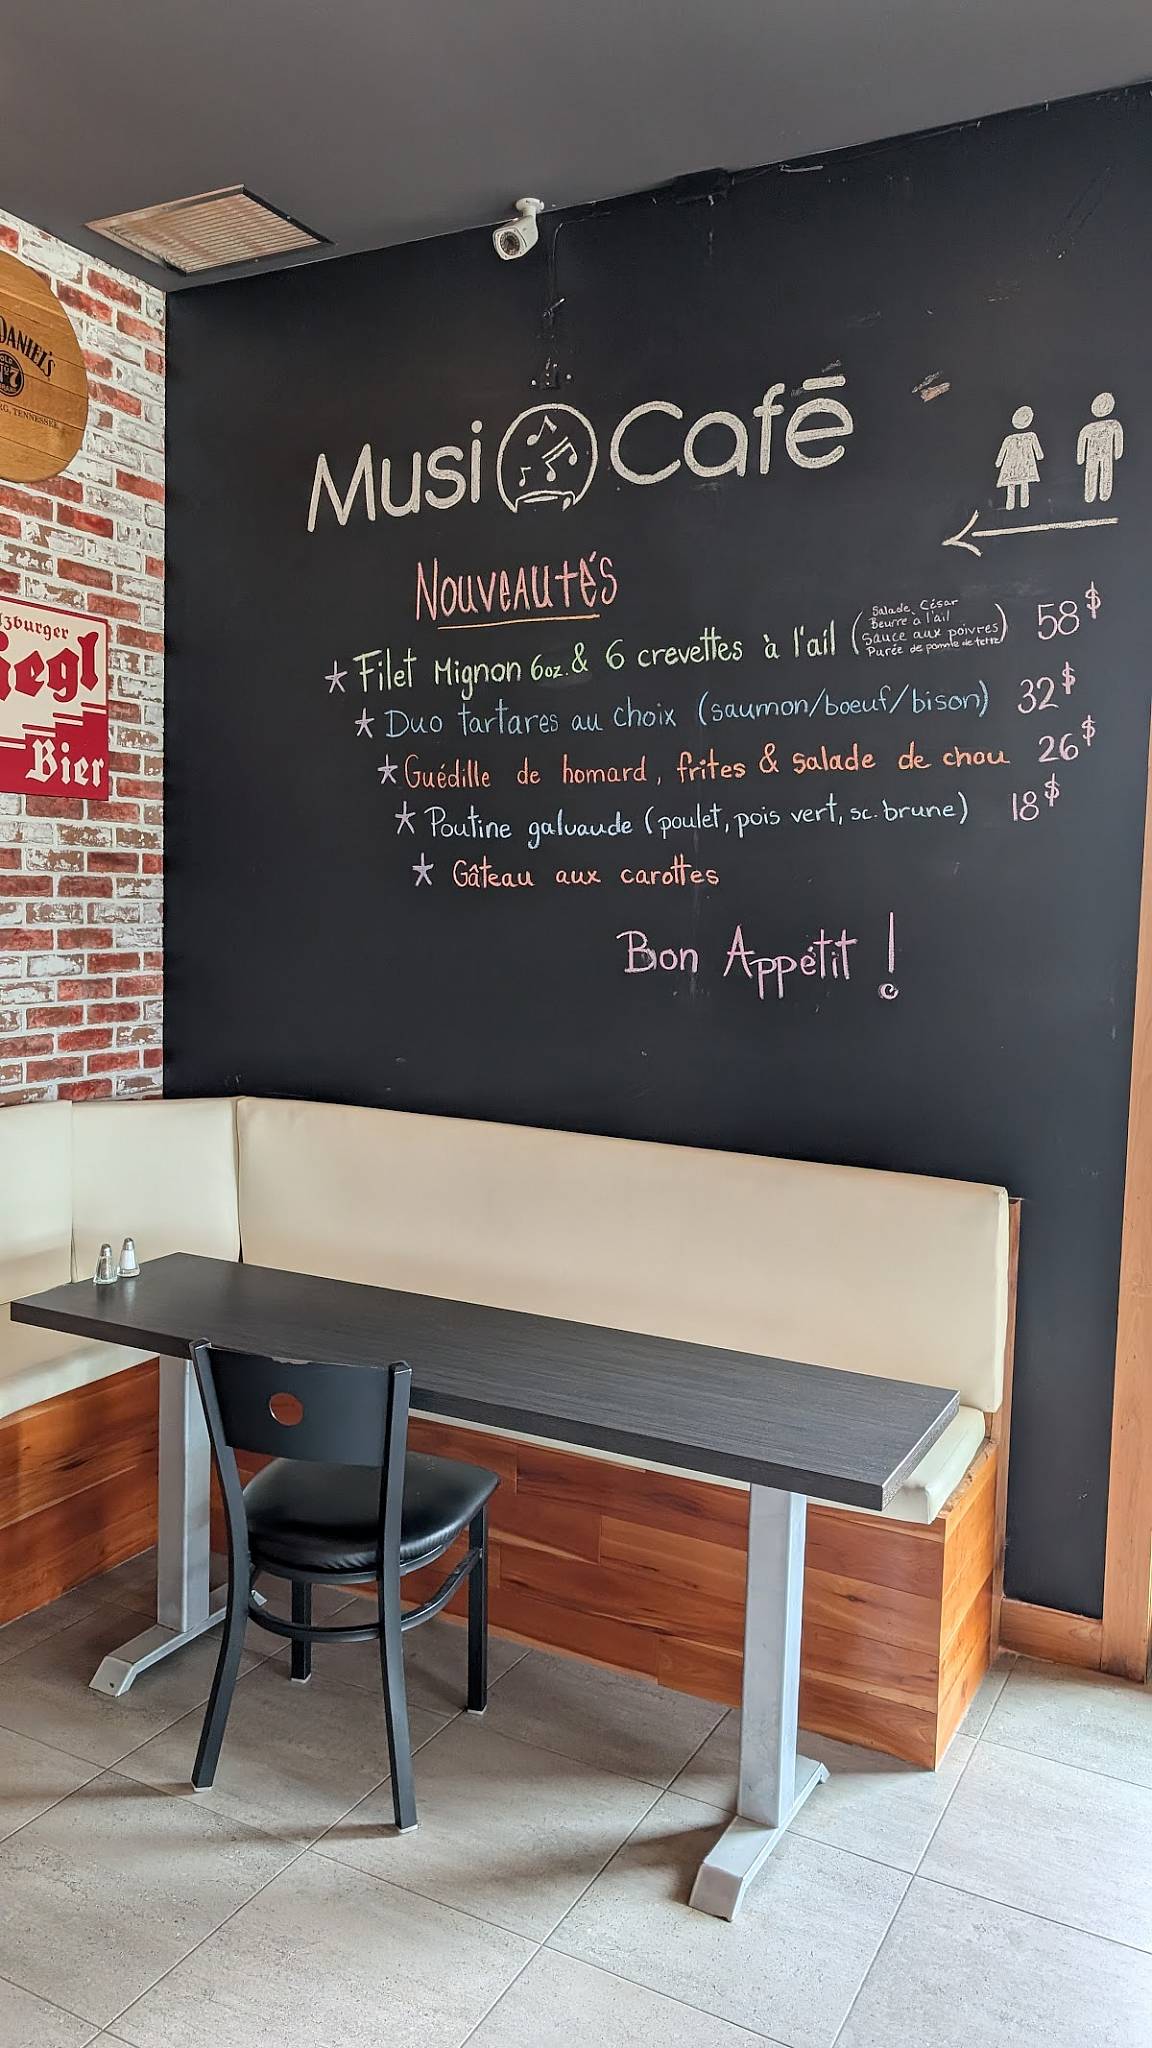 DANIEL'S
7
TENNESSEE
Musi Café
Nouveautés
* Filet Mignon 6oz. & 6 crevettes à l'ail (Salade César
Beurre à l'ail
Sauce aux poivres
Purée de pomme de terre) 58$
* Duo tartares au choix (saumon/boeuf/bison) 32$
* Guédille de homard, frites & salade de chou 26$
* Poutine galvaude (poulet, pois vert, sc. brune) 18$
* Gâteau aux carottes
Bon Appétit !
zburger
iegl
Bier